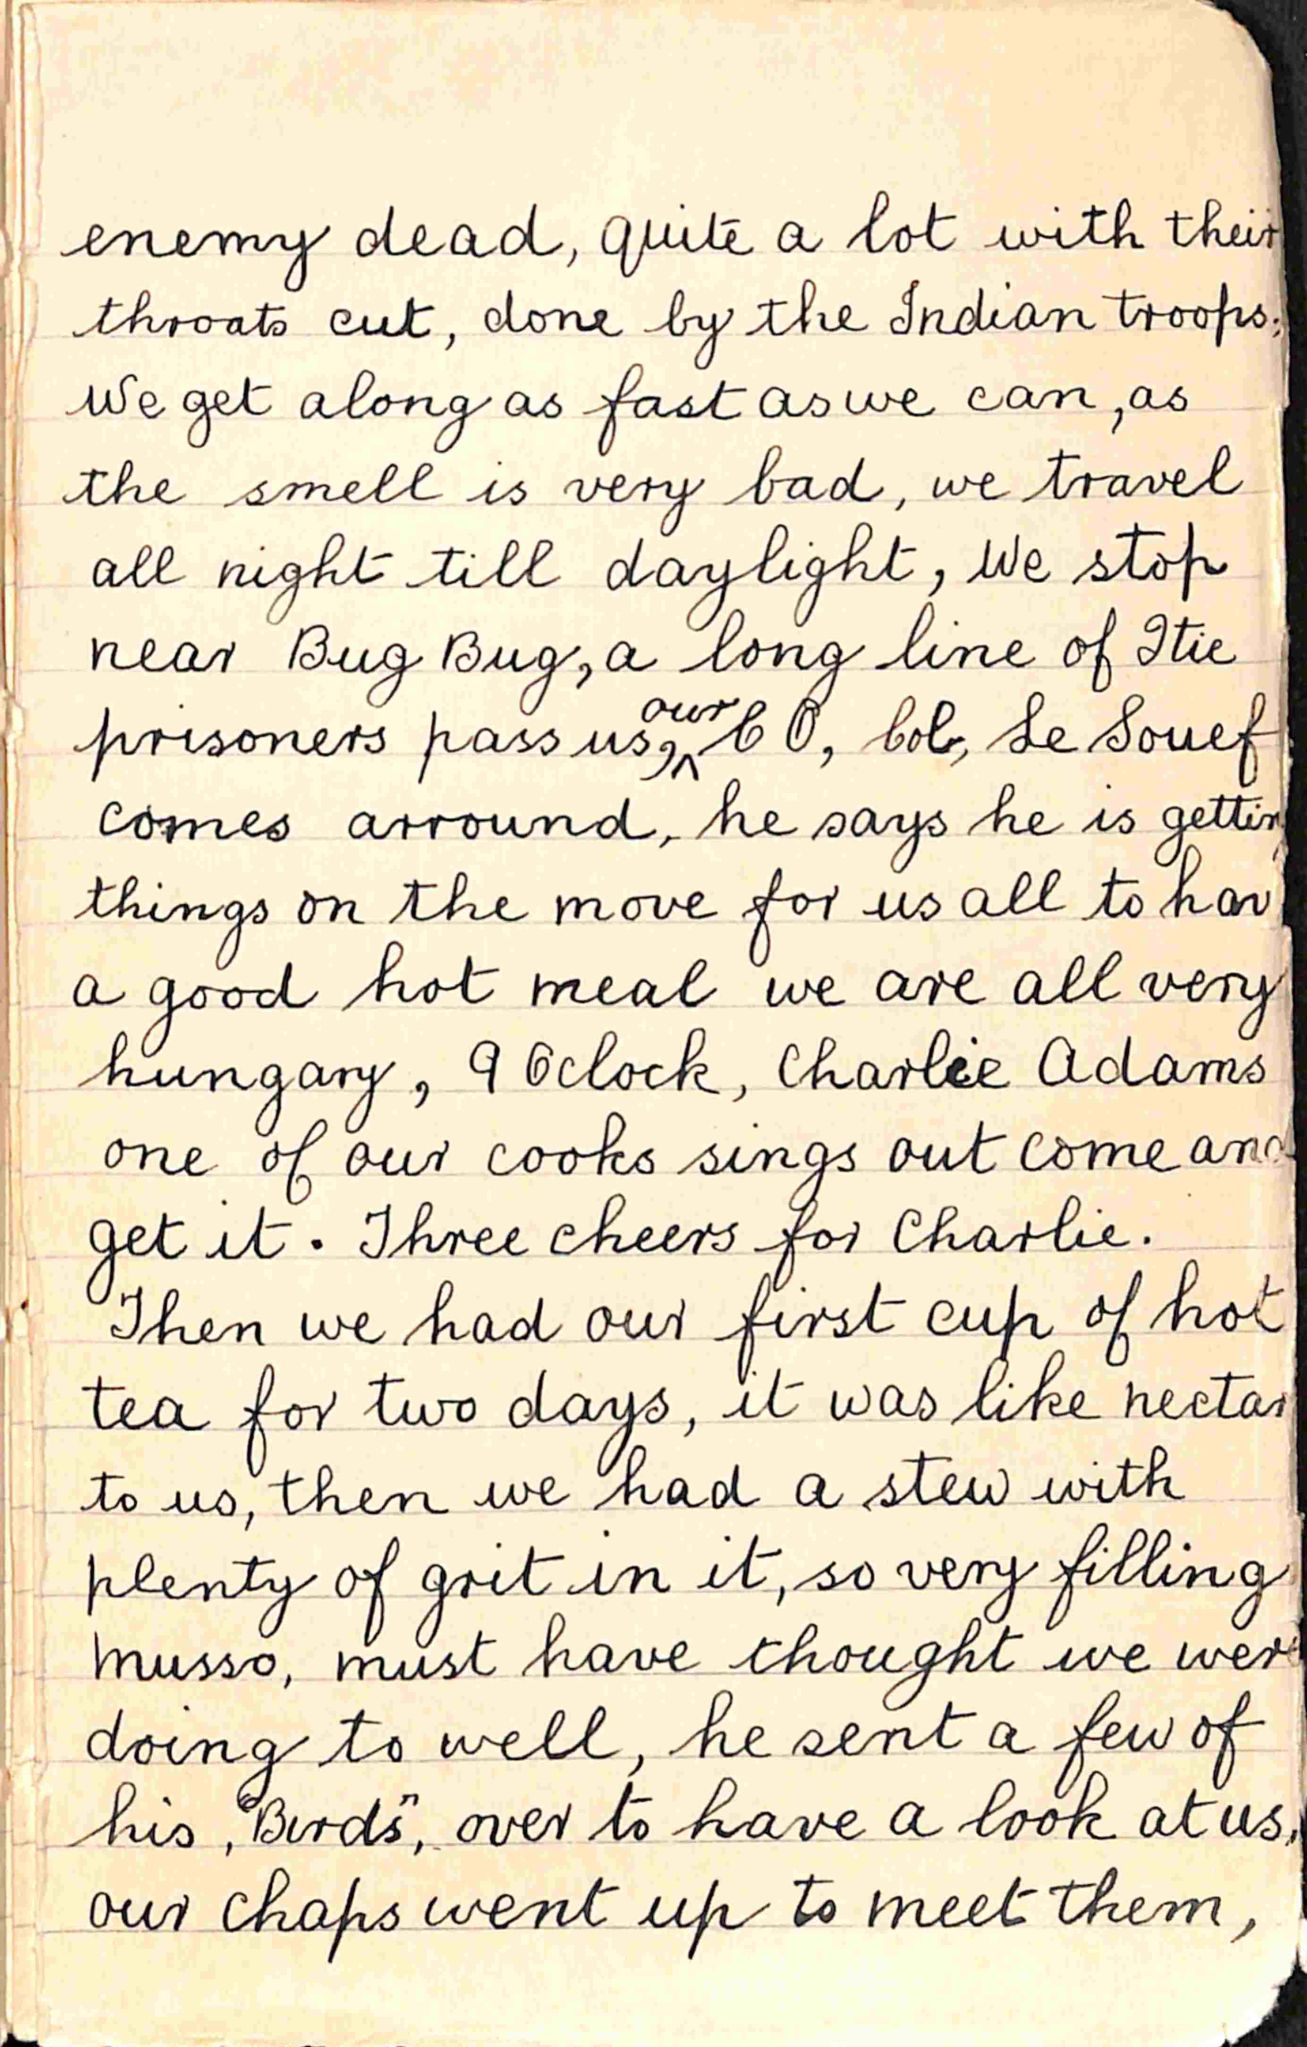 enemy dead, quite a lot with their
throats cut, done by the Indian troops.
We get along as fast as we can, as
the smell is very bad, we travel
all night till daylight, We stop
near Bug Bug, a long line of Itie
prisoners pass us, our C O, Col, Le Souef
comes arround, he says he is gettin
things on the move for us all to hav
a good hot meal we are all very
hungary, 9 Oclock, Charlie Adams
one of our cooks sings out come and
get it. Three cheers for Charlie.
Then we had our first cup of hot
tea for two days, it was like nectar
to us, then we had a stew with
plenty of grit in it, so very filling
Musso, must have thought we were
doing to well, he sent a few of
his, "Birds", over to have a look at us,
our chaps went up to meet them,